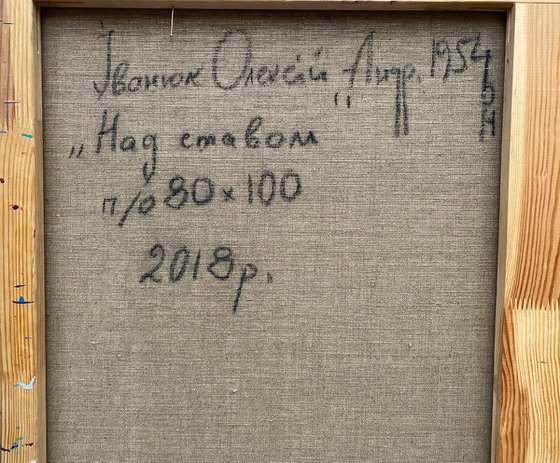 Іванюк Олексій Андр. 1954 р.н
„Над ставом"
п/о 80×100
2018р.